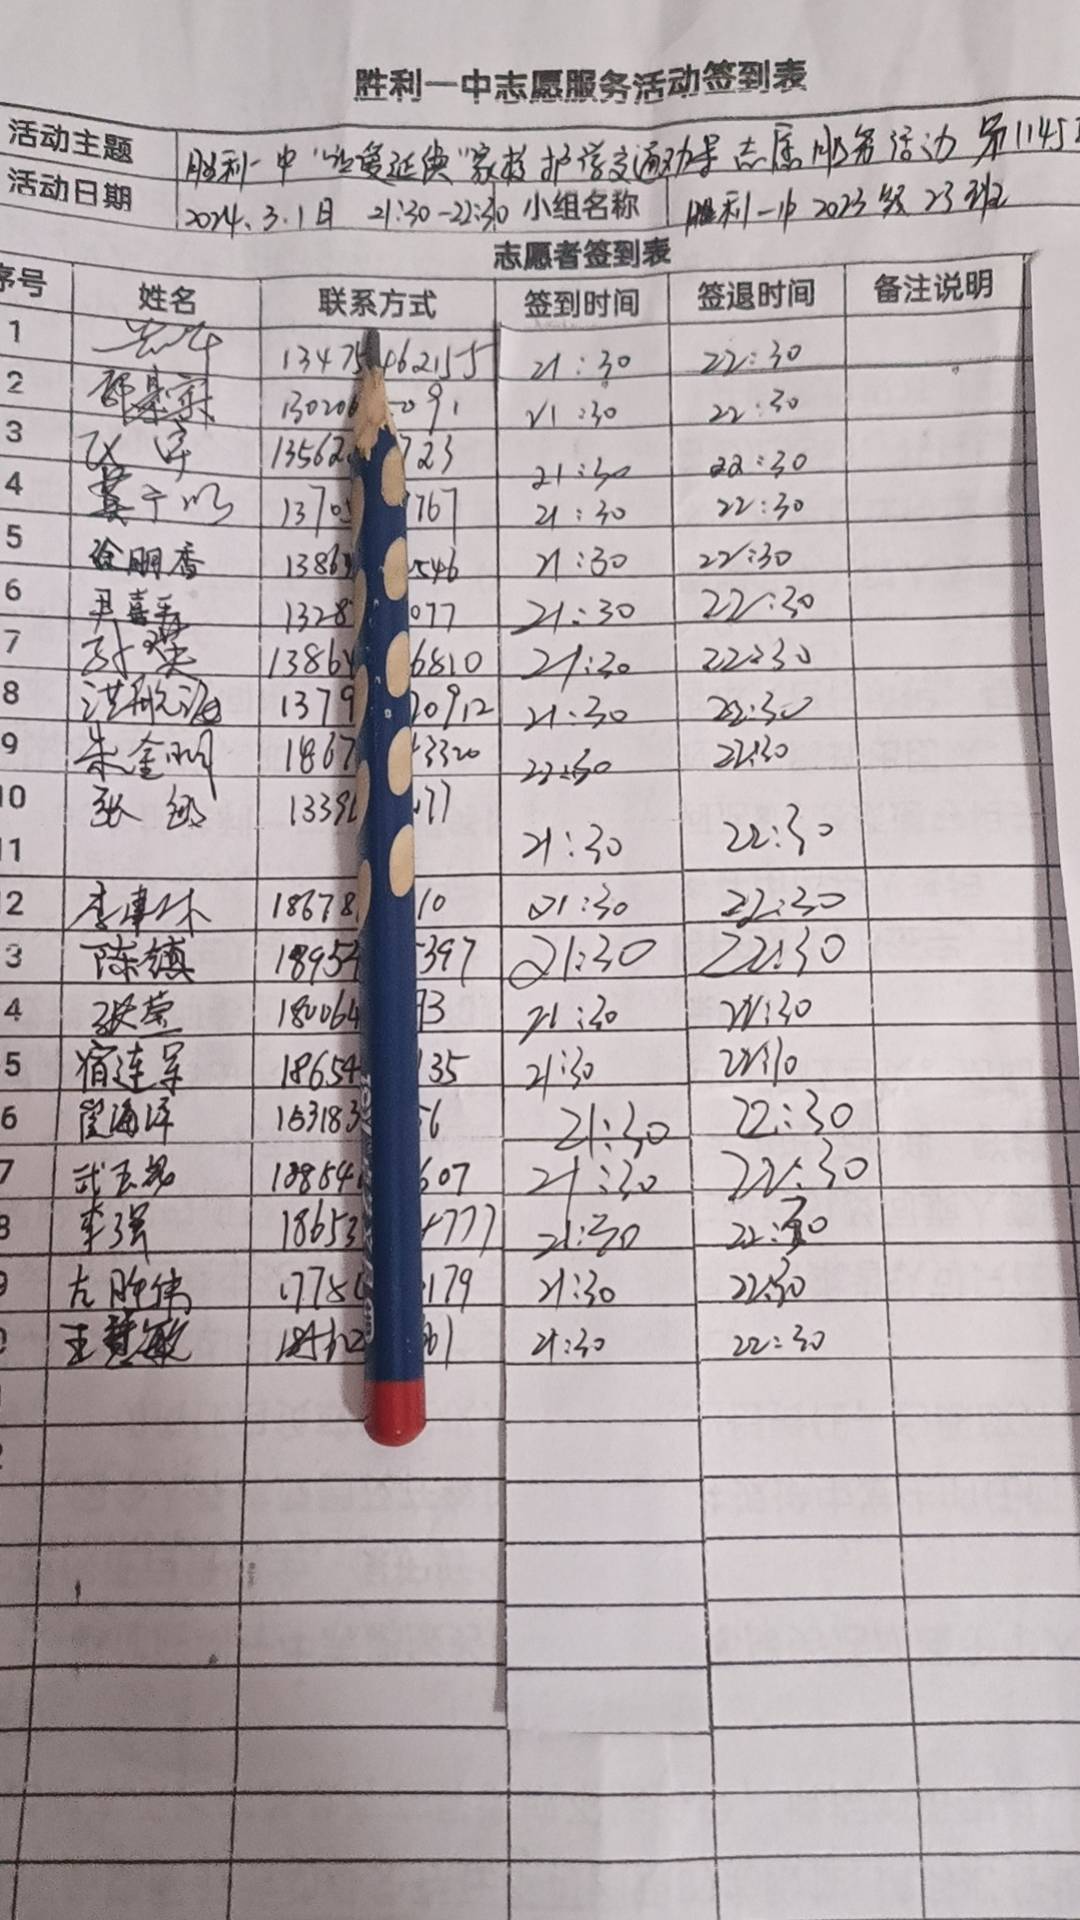 胜利一中志愿服务活动签到表
活动主题 胜利一中"让爱延续"家校护学交通劝导志愿服务活动 第1145
活动日期 2024.3.1日 21:30-22:30 小组名称 胜利一中2023级23班
志愿者签到表
序号 姓名 联系方式 签到时间 签退时间 备注说明
1 1347 462155 21:30 22:30
2 13020 091 21:30 22:30
3 13562 723 21:30 22:30
4 1370 767 21:30 22:30
5 徐朋香 1386 546 21:30 22:30
6 尹嘉 1328 077 21:30 22:30
7 1386 6810 21:30 22:30
8 洪 1379 20912 21:30 22:30
9 朱金明 1867 3320 22:30
10 张 1339 77
11 21:30 22:30
2 李 18678 10 21:30 22:30
3 陈 1895 397 21:30 22:30
4 张莹 180064 93 21:30 22:30
5 宿连军 18654 135 21:30
6 海洋 153183 56 21:30 22:30
7 武玉 18854 607 21:30 22:30
8 李强 18653 777 21:30 22:30
9 左胜伟 1778 179 21:30 22:30
王慧敏 61 21:30 22:30